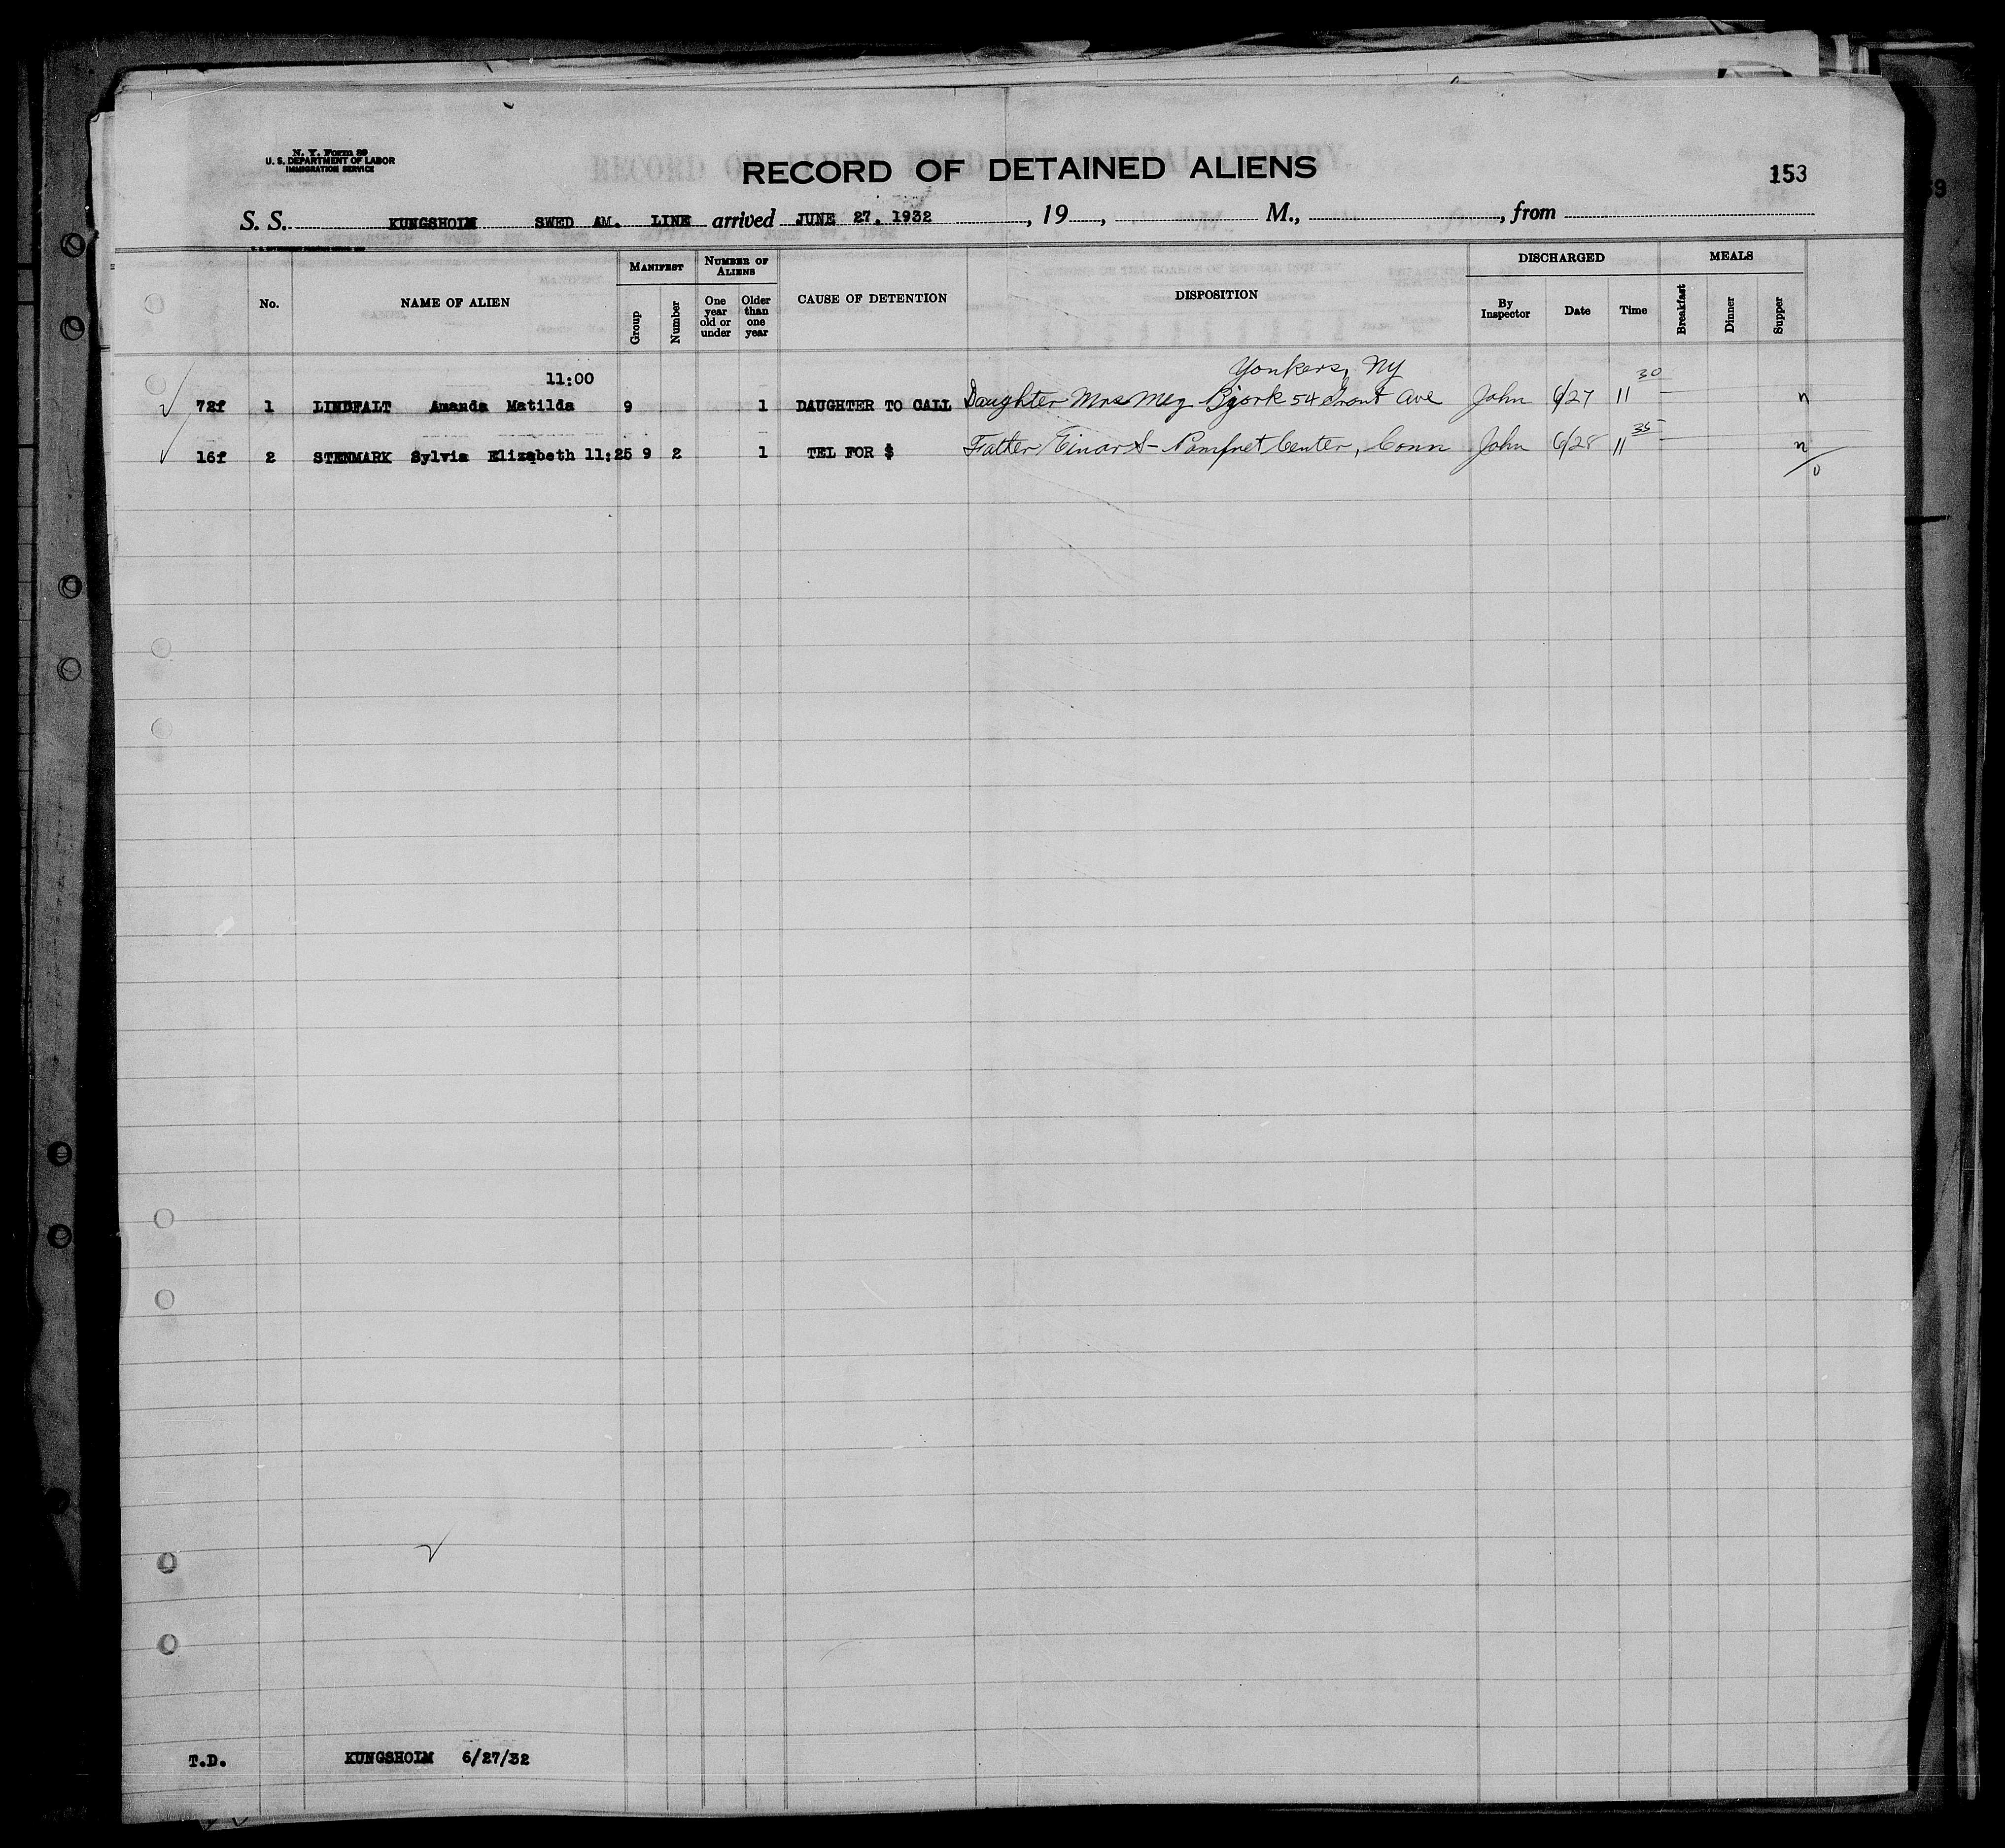 N. Y. Form 99
U. S. DEPARTMENT OF LABOR
IMMIGRATION SERVICE
RECORD OF DETAINED ALIENS
153
S. S. KUNGSHOLM SWED AM. LINE arrived JUNE 27, 1932, 19, M., from
No. NAME OF ALIEN MANIFEST Group Number NUMBER OF ALIENS One year old or under Older than one year CAUSE OF DETENTION DISPOSITION DISCHARGED By Inspector Date Time MEALS Breakfast Dinner Supper
11:00 Yonkers, NY
72f 1 LINDFALT Amanda Matilda 9 1 DAUGHTER TO CALL Daughter Mrs Meg Bjork 54 Grant Ave John 6/27 11 30 n
16f 2 STENMARK Sylvia Elizabeth 11:25 9 2 1 TEL FOR $ Father Einar S- Pomfret Center, Conn John 6/28 11 35 n
0
T.D. KUNGSHOLM 6/27/32